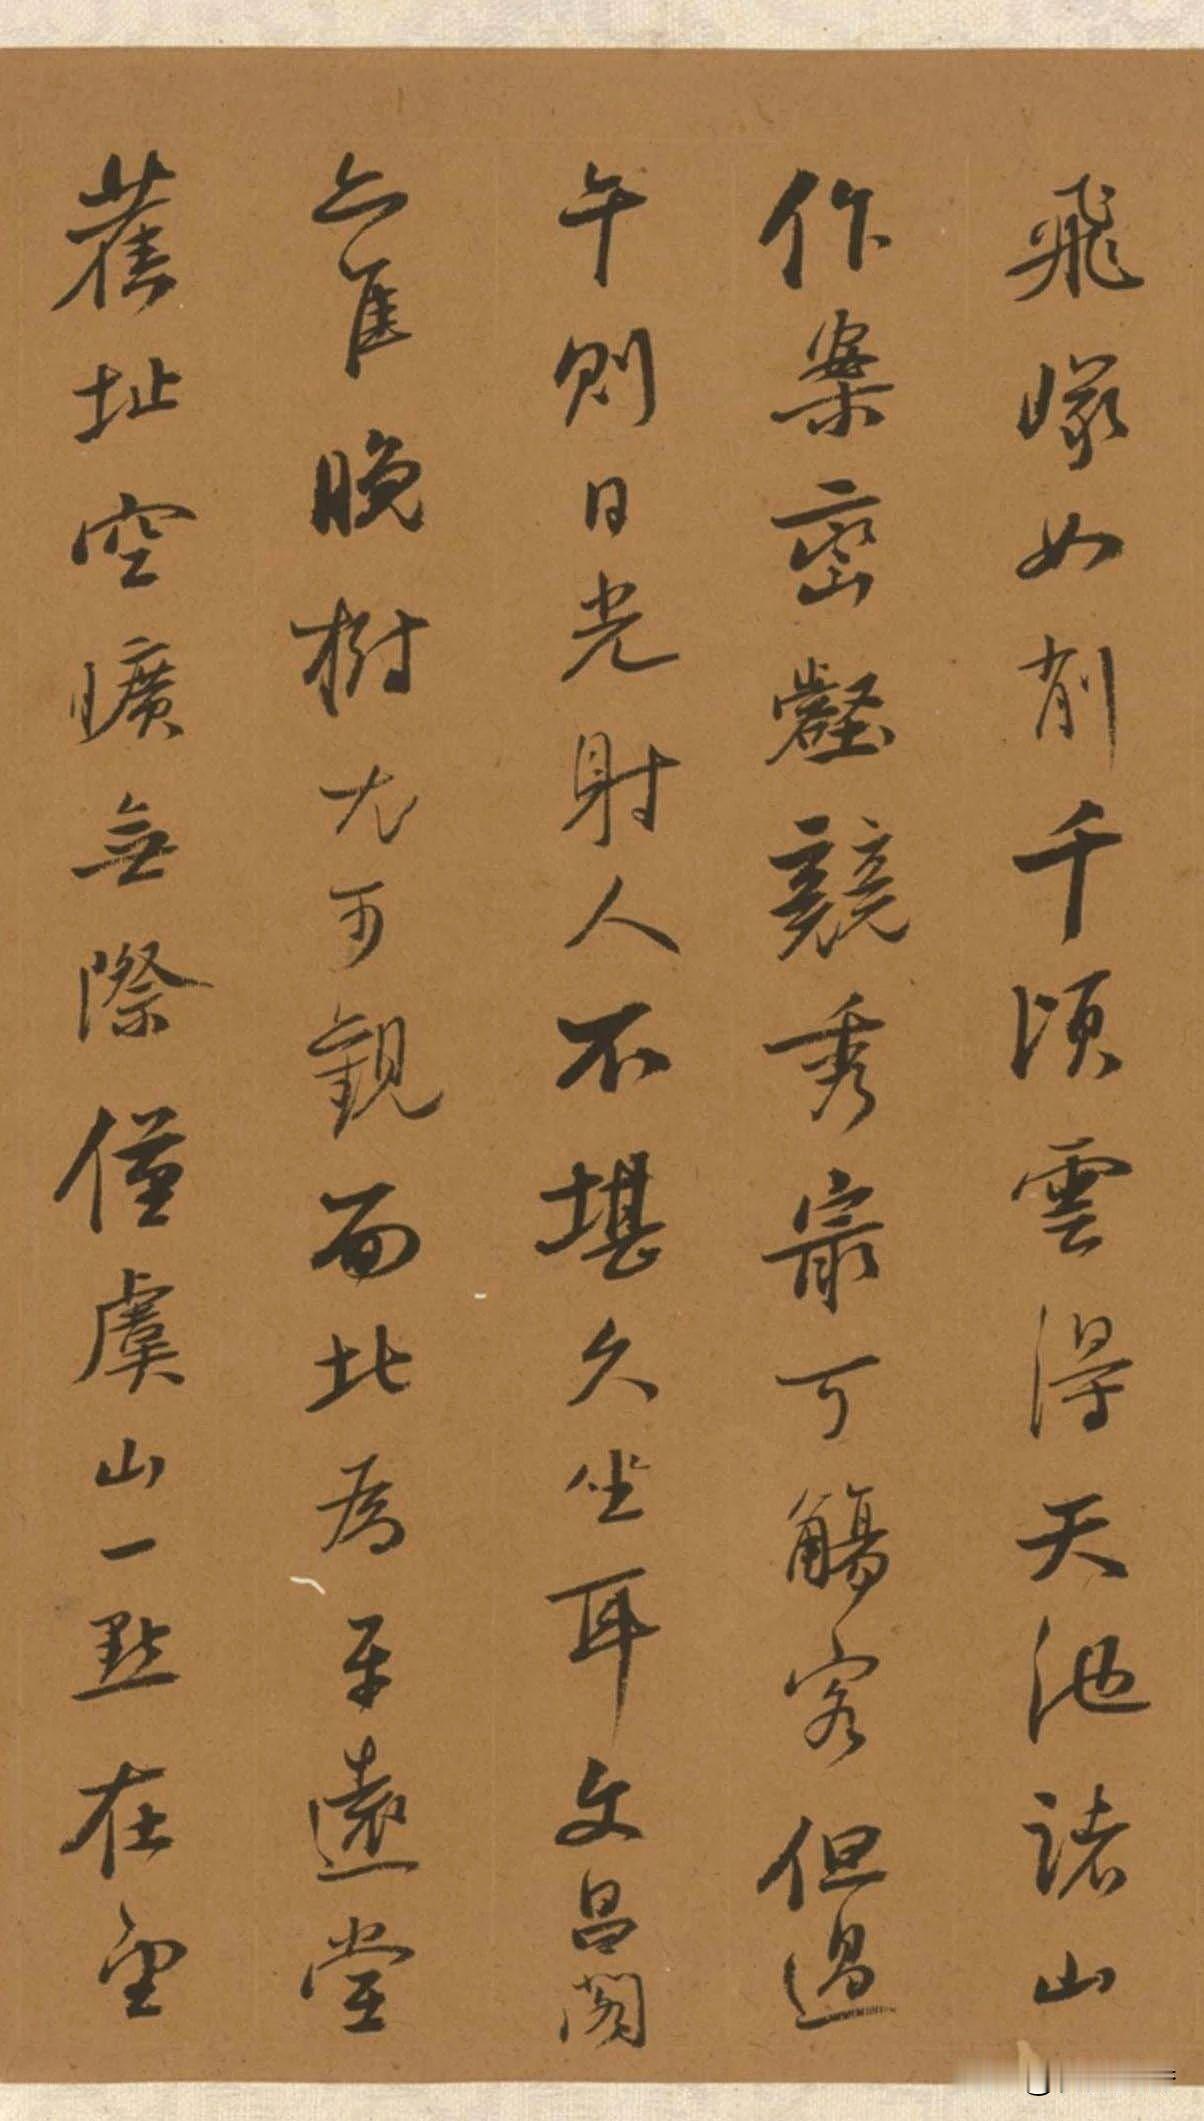 飛如削千頃雲得天池諸山
作案巒壑競秀最可觴客但過
午則日光射人不堪久坐耳文昌閣
亦佳晚樹尤可觀而北為平遠堂
舊址空曠無際僅虞山一點在望